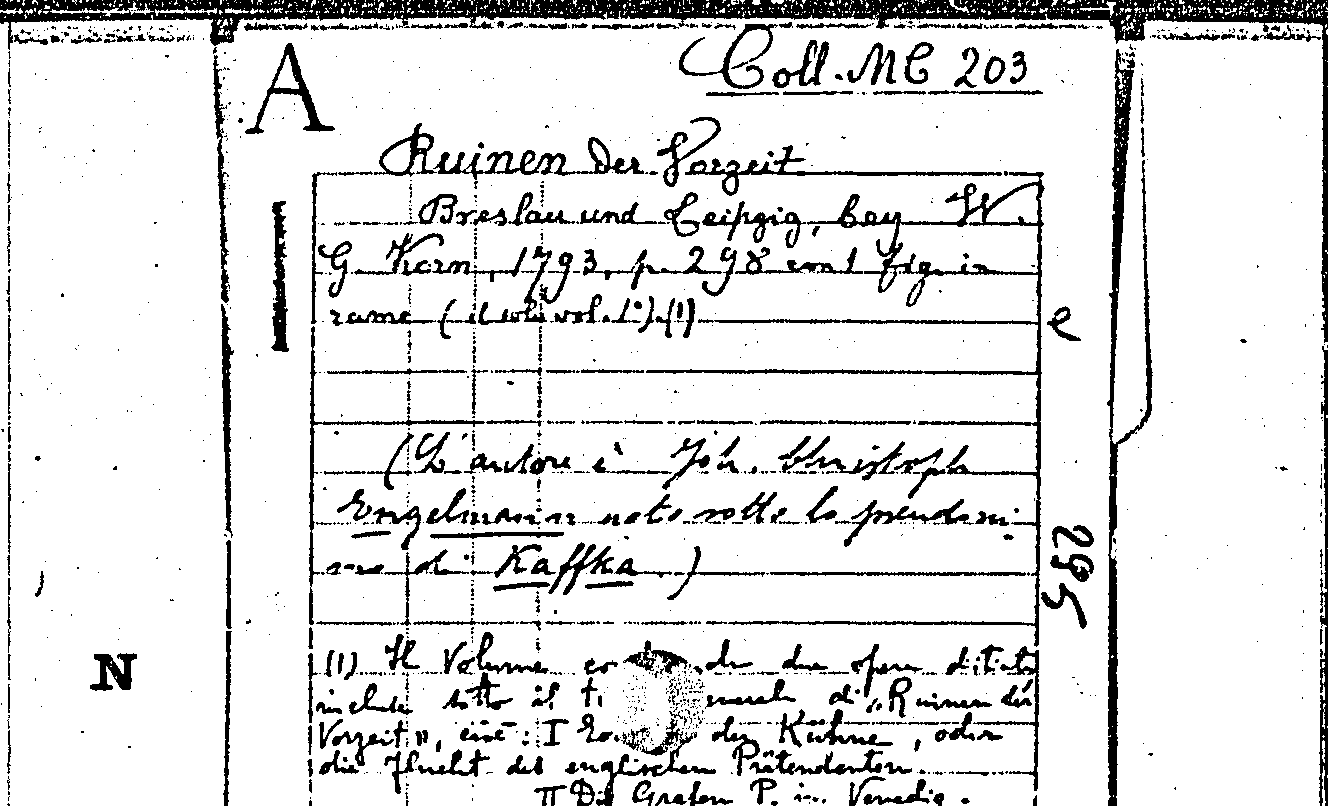 A
Coll. MC 203
Ruinen der Vorzeit
Breslau und Leipzig, bey W.
G. Korn, 1793, p. 298 con 1 fig. in
rame ( il solo vol. 1°).(1)
e
(L'autore è Joh. Christoph
Engelmann noto sotto lo pseudoni-
mo di Kaffka.)
295
N
(1) Il Volume de due opere
incluse sotto il di „Ruinen der
Vorzeit", cioè: I der Kühne, oder
die Flucht des englischen Prätendenten.
II Die Grafen P. in Venedig.